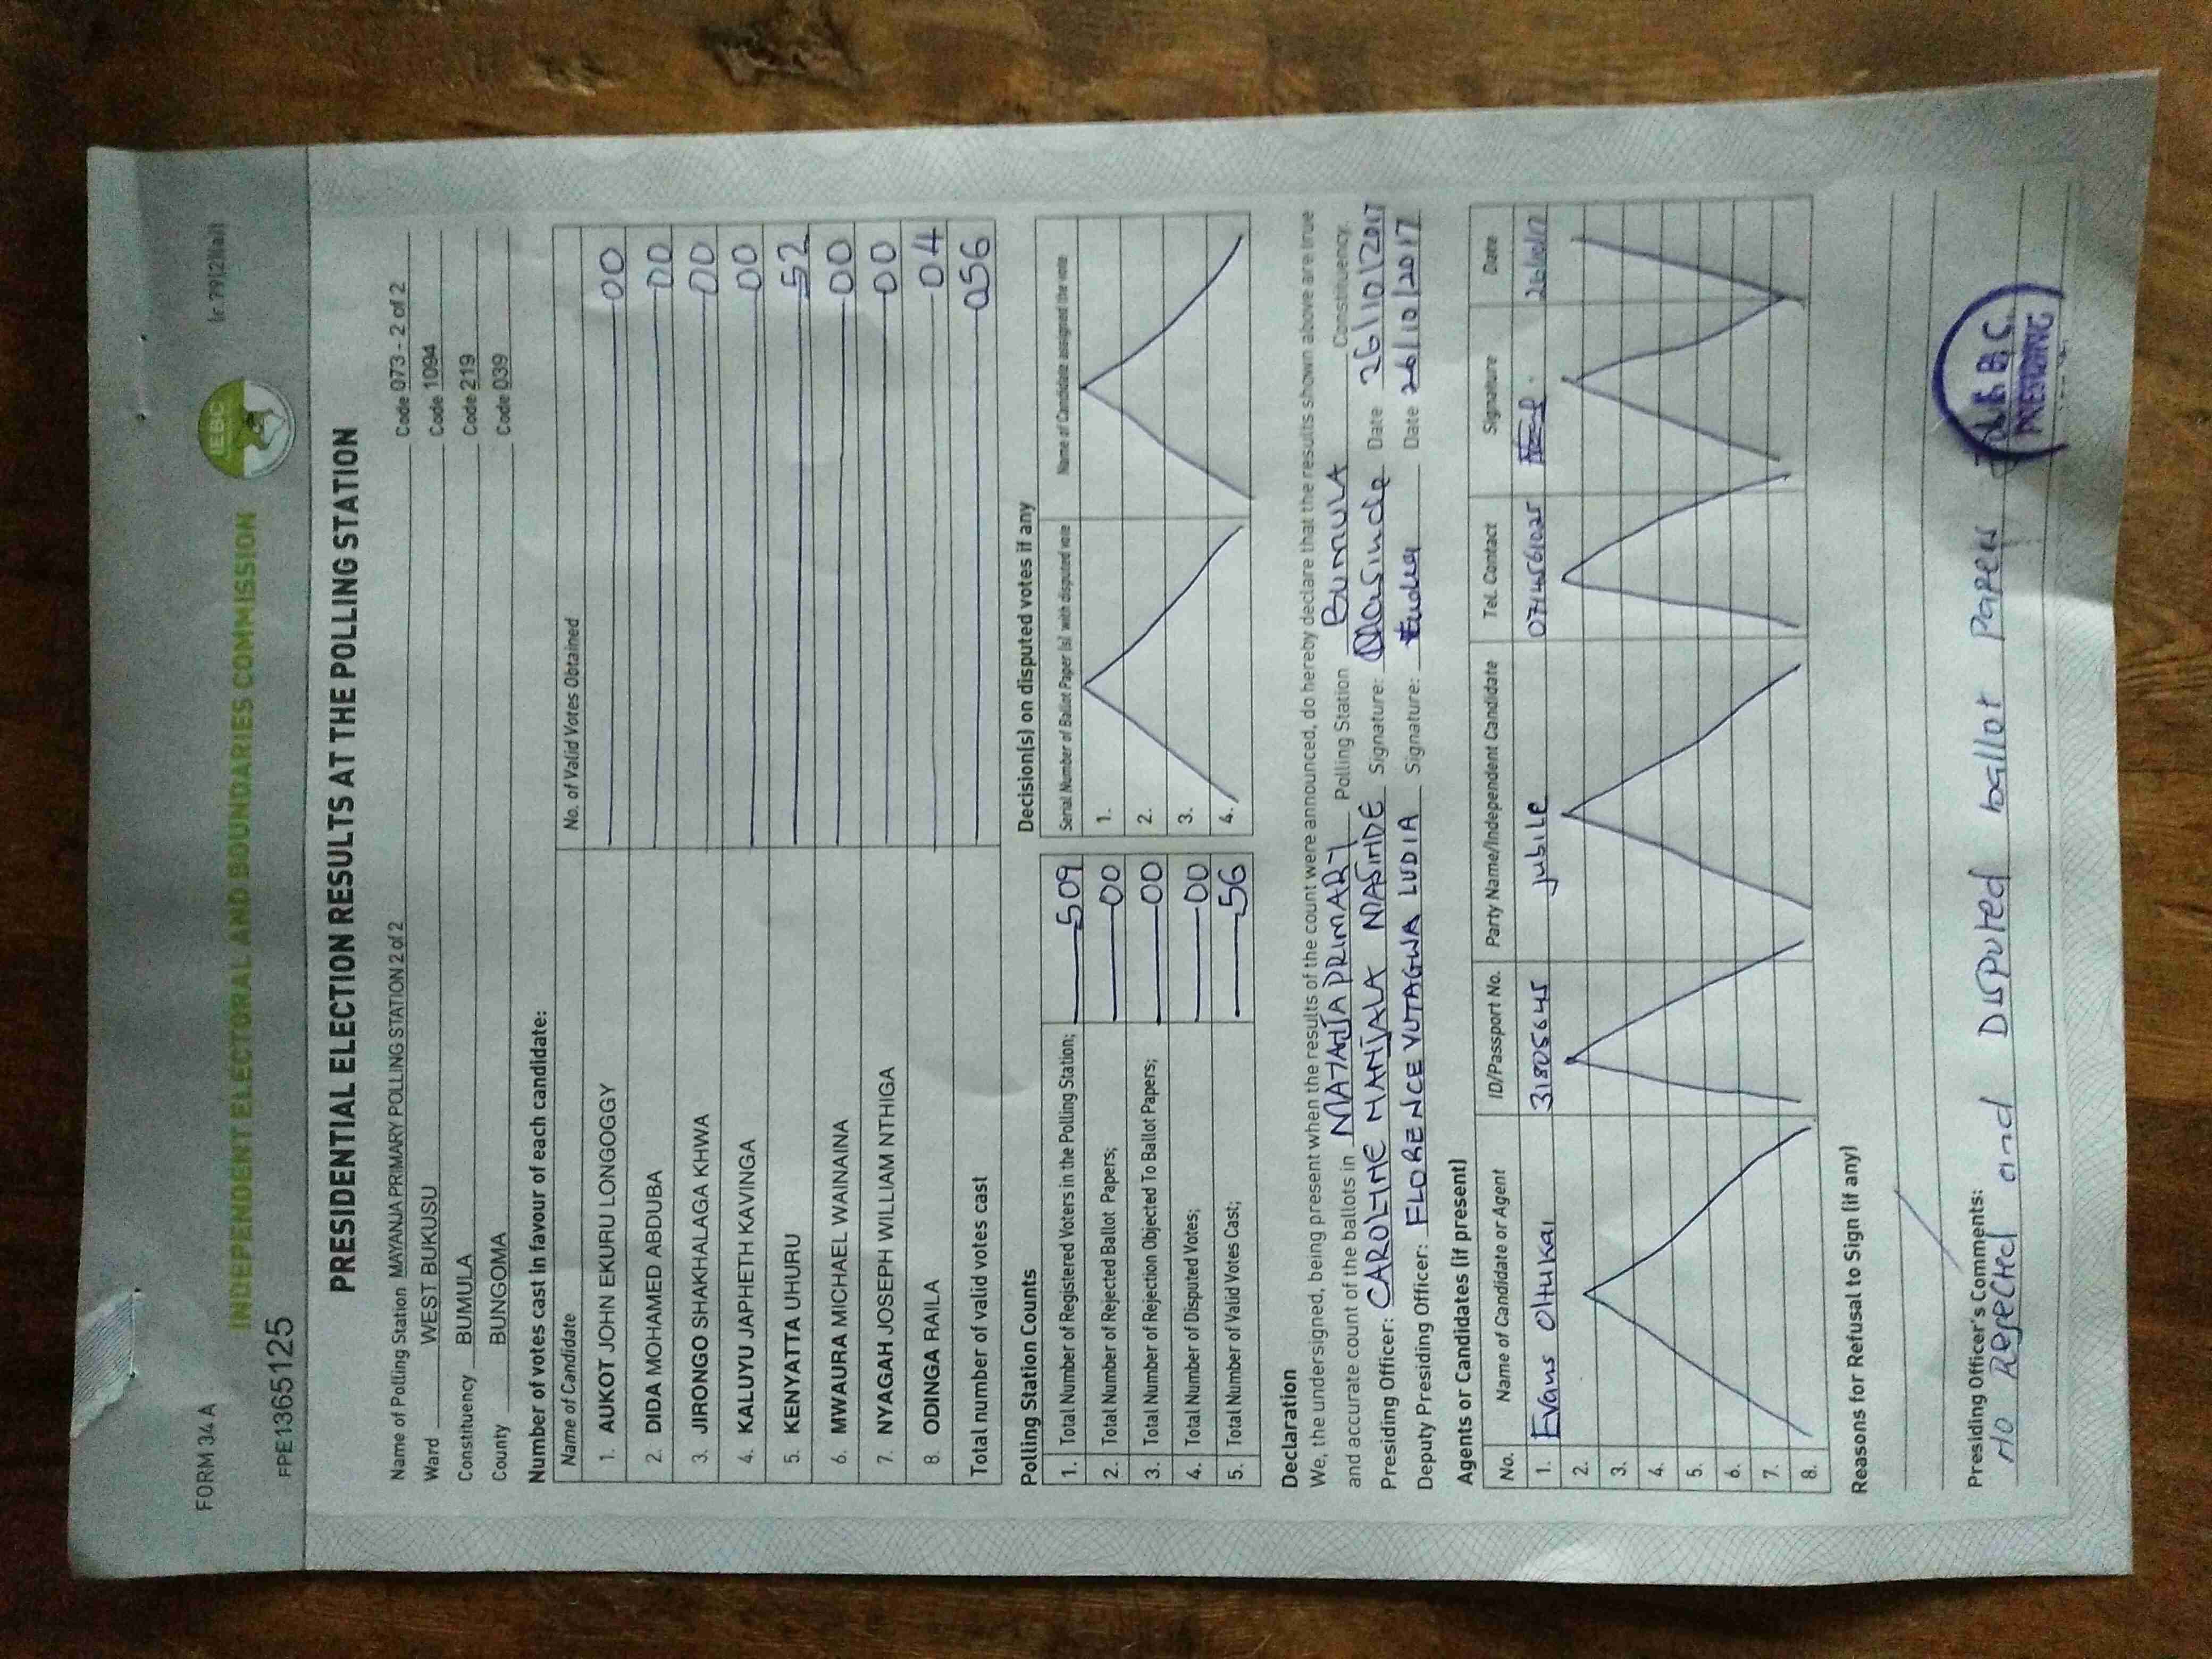 FORM 34A
IEBC
INDEPENDENT ELECTORAL AND BOUNDARIES COMMISSION
FPE1365125
PRESIDENTIAL ELECTION RESULTS AT THE POLLING STATION
Name of Polling Station MAYANJA PRIMARY POLLING STATION 2 of 2 Code 073 - 2 of 2
Ward WEST BUKUSU Code 1094
Constituency BUMULA Code 219
County BUNGOMA Code 039
Number of votes cast in favour of each candidate:
Name of Candidate No. of Valid Votes Obtained
1. AUKOT JOHN EKURU LONGOGGY 00
2. DIDA MOHAMED ABDUBA 00
3. JIRONGO SHAKHALAGA KHWA 00
4. KALUYU JAPHETH KAVINGA 00
5. KENYATTA UHURU 52
6. MWAURA MICHAEL WAINAINA 00
7. NYAGAH JOSEPH WILLIAM NTHIGA 00
8. ODINGA RAILA 04
Total number of valid votes cast 056
Polling Station Counts
1. Total Number of Registered Voters in the Polling Station; 509
2. Total Number of Rejected Ballot Papers; 00
3. Total Number of Rejection Objected To Ballot Papers; 00
4. Total Number of Disputed Votes; 00
5. Total Number of Valid Votes Cast; 56
Decision(s) on disputed votes if any
Serial Number of Ballot Paper (s) with disputed vote Name of Candidate assigned the vote
1.
2.
3.
4.
Declaration
We, the undersigned, being present when the results of the count were announced, do hereby declare that the results shown above are true
and accurate count of the ballots in MAYANJA PRIMARY Polling Station BUMULA Constituency.
Presiding Officer: CAROLINE NANJALA MASINDE Signature: Masinde Date 26/10/2017
Deputy Presiding Officer: FLORENCE VUTAGWA LUDIA Signature: Date 26/10/2017
Agents or Candidates (if present)
No. Name of Candidate or Agent ID/Passport No. Party Name/Independent Candidate Tel. Contact Signature Date
1. Evans 31805645 jubile 26/10/17
2.
3.
4.
5.
6.
7.
8.
Reasons for Refusal to Sign (if any)
Presiding Officer's Comments:
No Rejected and Disputed ballot papers
PRESIDING